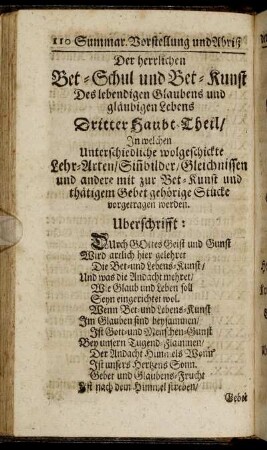 110 Summar. Vorstellung und Abriß
Der herrlichen
Bet-Schul und Bet-Kunst
Des lebendigen Glaubens und
gläubigen Lebens
Dritter Haubt-Theil/
In welchen
Unterschiedliche wolgeschickte
Lehr-Arten/Siñbilder/Gleichnissen
und andere mit zur Bet-Kunst und
thätigem Gebet gehörige Stücke
vorgetragen werden.
Uberschrifft:
DUrch GOttes Geist und Gunst
Wird artlich hier gelehret
Die Bet-und Lebens-Kunst/
Und was die Andacht mehret/
Wie Glaub und Leben soll
Seyn eingerichtet wol.
Wenn Bet-und Lebens-Kunst
Im Glauben sind beysammen/
Ist Gott-und Menschen-Gunst
Bey unsern Tugend-Flammen/
Der Andacht Himmels Wonn
Ist unsers Hertzens Sonn.
Gebet und Glaubens-Frucht
Ist nach dem Himmel streben/
Gebet